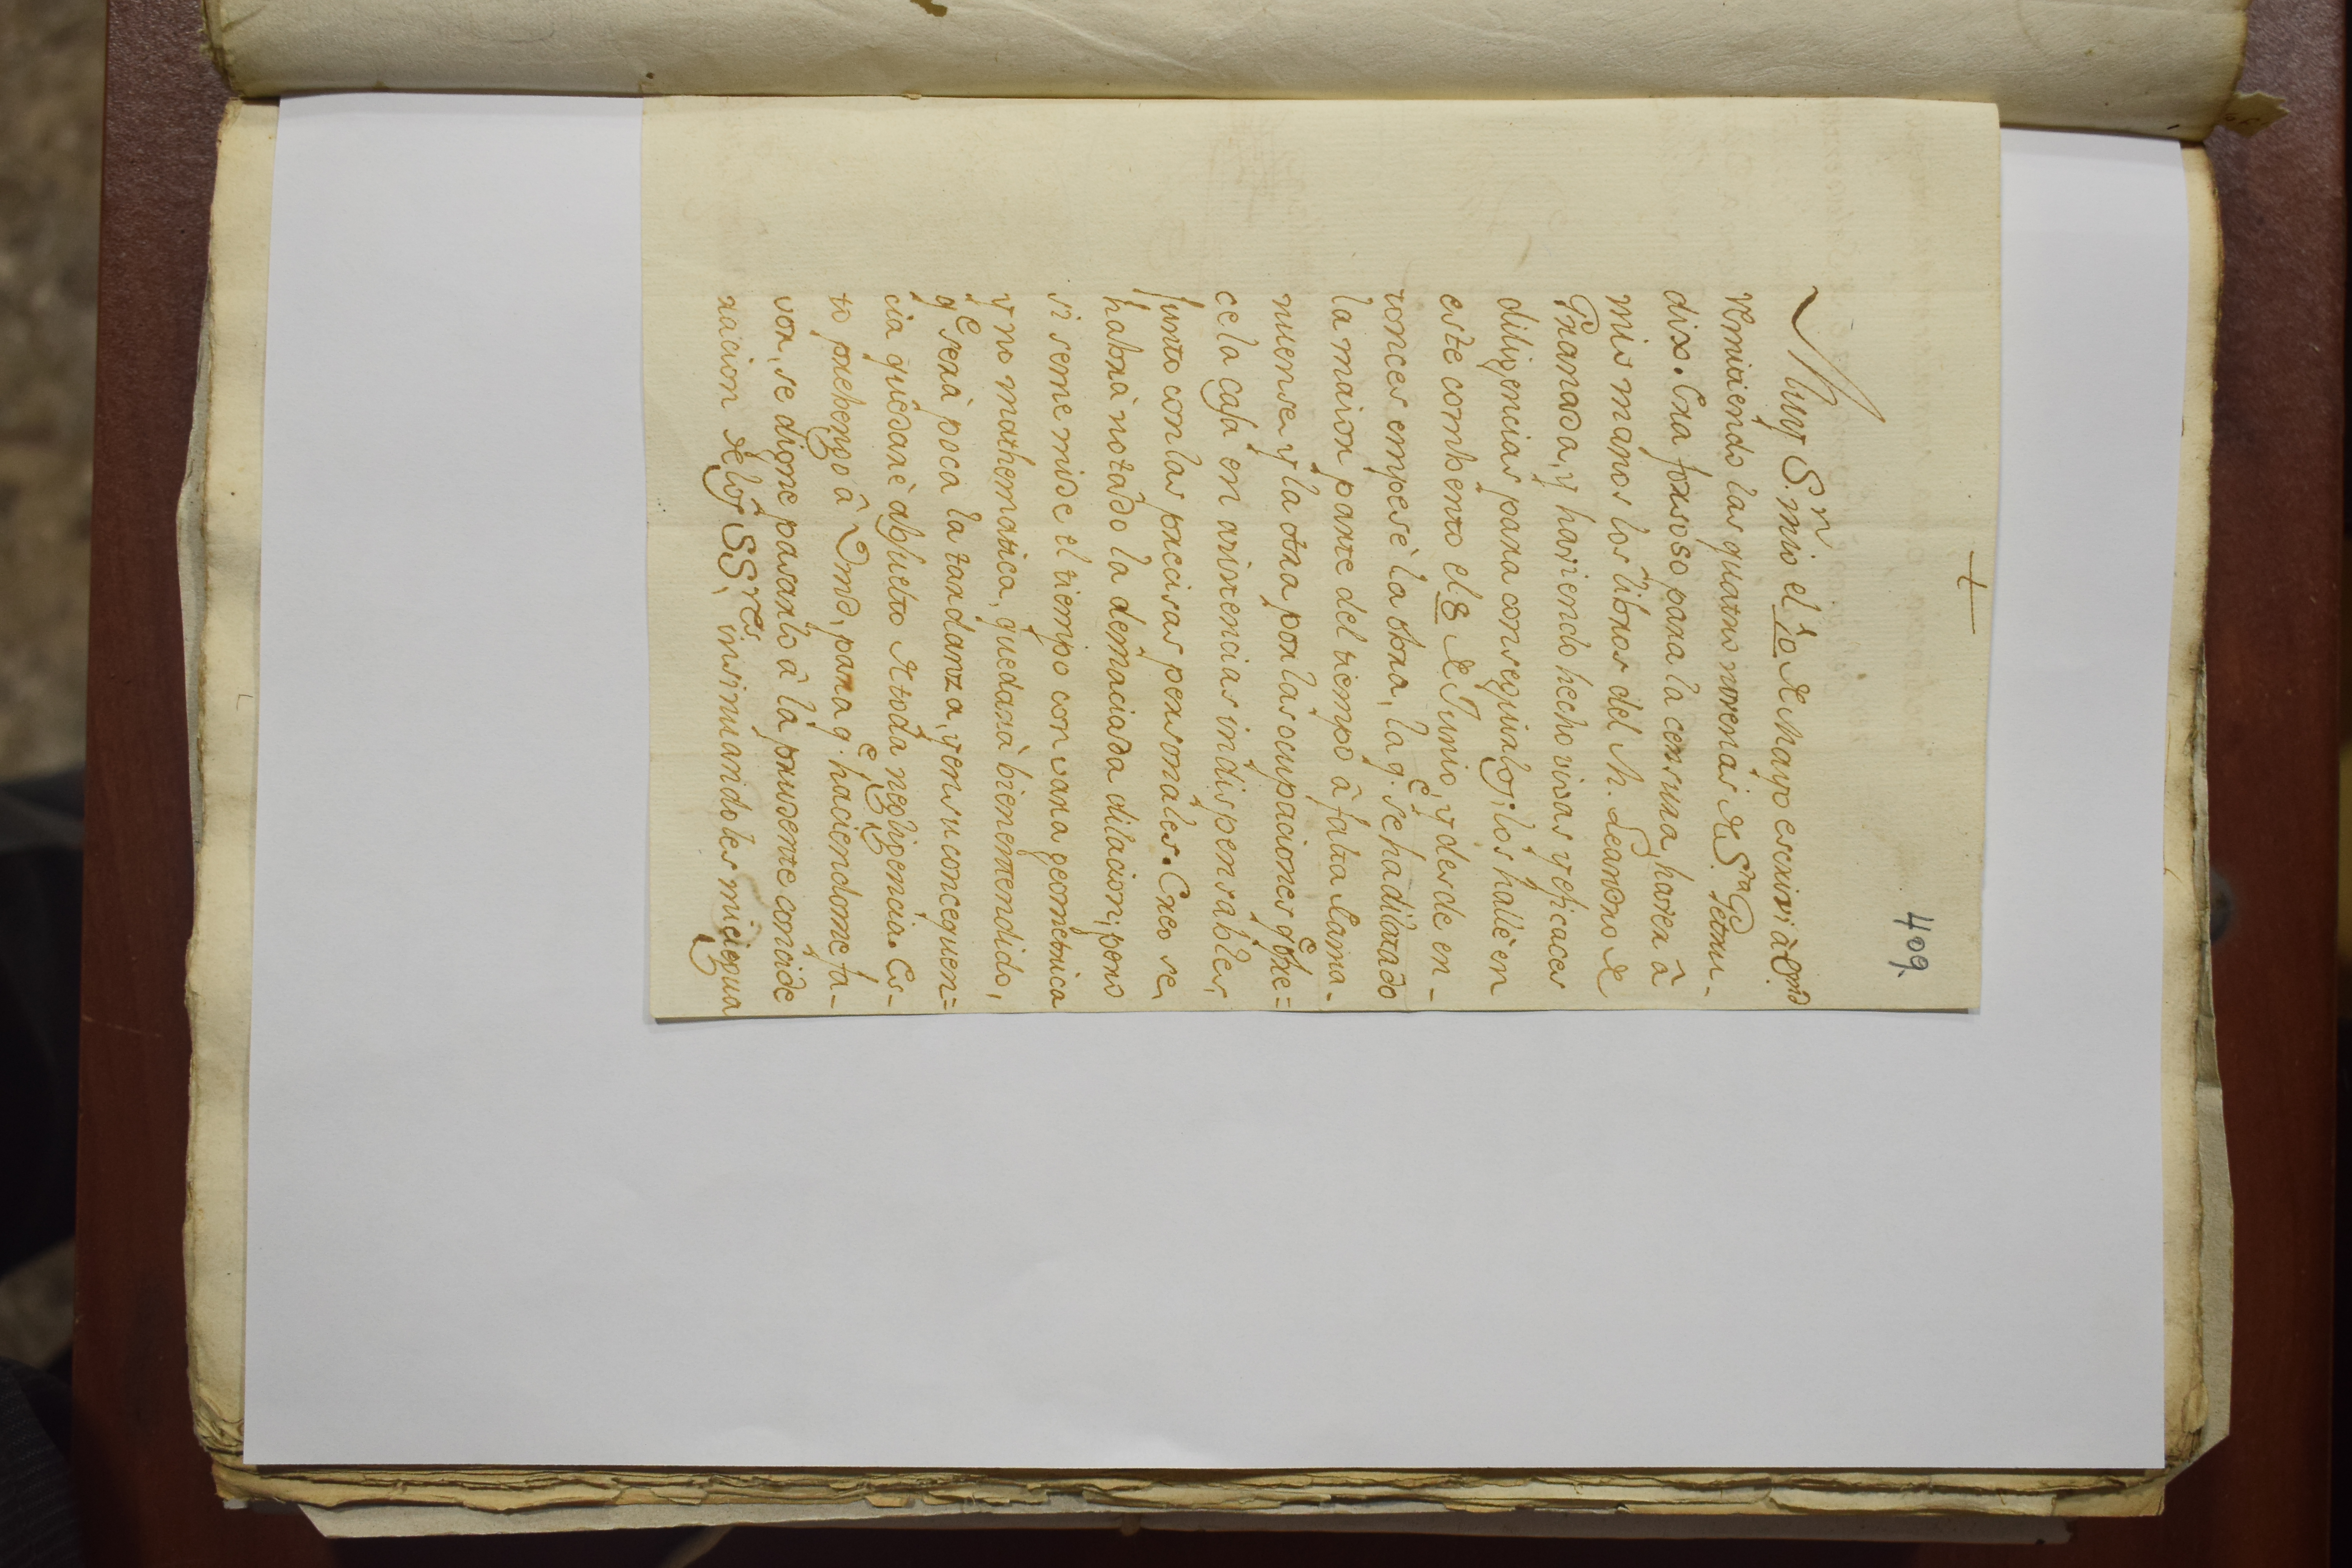 +
409.
Muy S.r mio el 10 de Mayo escrivi à Vmd.
remitiendo las quatro novenas de S.ta Getru-
dis. Era forsoso para la censura, haver à
mis manos los libros del M. Leandro de
Granada, y haviendo hecho vivas y eficaces
diligencias para conseguirlos, los hallè en
este combento el 8 de Junio, y desde en-
tonces empesè la obra, la q.e se ha dilatado
la maior parte del tiempo à falta de ama-
nuense, y la otra por las ocupaciones q.e ofre=
ce la casa en asistencias indispensables,
junto con las paccisas personales. Creo se
habrà notado la demaciada dilacion; pero
si se me mide el tiempo con vara geometrica
y no mathematica, quedarà bien entendido,
q.e serà poca la tardanza, y en su concequen=
cia quedarè absuelto de toda negligencia. Es-
to prebengo à Vmd, para q.e haciendome fa-
vor, se digne pasarlo à la prudente conside
racion de los SS.res, insinuandoles mi segura